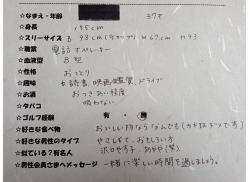 ☆なまえ・年齢 37才
☆身長 155cm
☆スリーサイズ B 98cm(Gカップ) W 67cm H 93
☆職業 電話オペレーター
☆血液型 B型
☆性格 おっとり
☆趣味 読書、映画鑑賞、ドライブ
☆お酒 おつきあい程度
☆タバコ 吸わない
☆ゴルフ経験 有・無
☆好きな食べ物 おいしい物なら なんでも
☆好きな男性のタイプ やさしくて、おもしろい方
☆似ている?有名人
☆男性会員さまへメッセージ 一緒に楽しい時間を過しましょう。